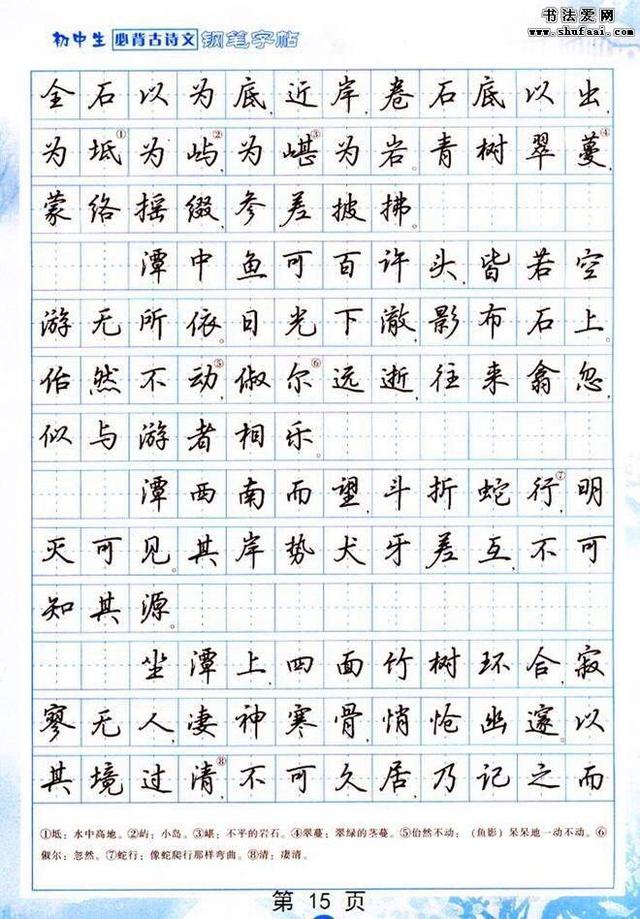 书法爱网
www.shufaai.com
初中生 必背古诗文 钢笔字帖
全石以为底,近岸,卷石底以出,
为坻①,为屿②,为嵁③,为岩。青树翠蔓④,
蒙络摇缀,参差披拂。
潭中鱼可百许头,皆若空
游无所依。日光下澈,影布石上。
佁然不动⑤,俶尔⑥远逝,往来翕忽,
似与游者相乐。
潭西南而望,斗折蛇行⑦,明
灭可见。其岸势犬牙差互,不可
知其源。
坐潭上,四面竹树环合,寂
寥无人,凄神寒骨,悄怆幽邃。以
其境过清⑧,不可久居,乃记之而
①坻:水中高地。②屿:小岛。③嵁:不平的岩石。④翠蔓:翠绿的茎蔓。⑤佁然不动:(鱼影)呆呆地一动不动。⑥
俶尔:忽然。⑦蛇行:像蛇爬行那样弯曲。⑧清:凄清。
第 15 页